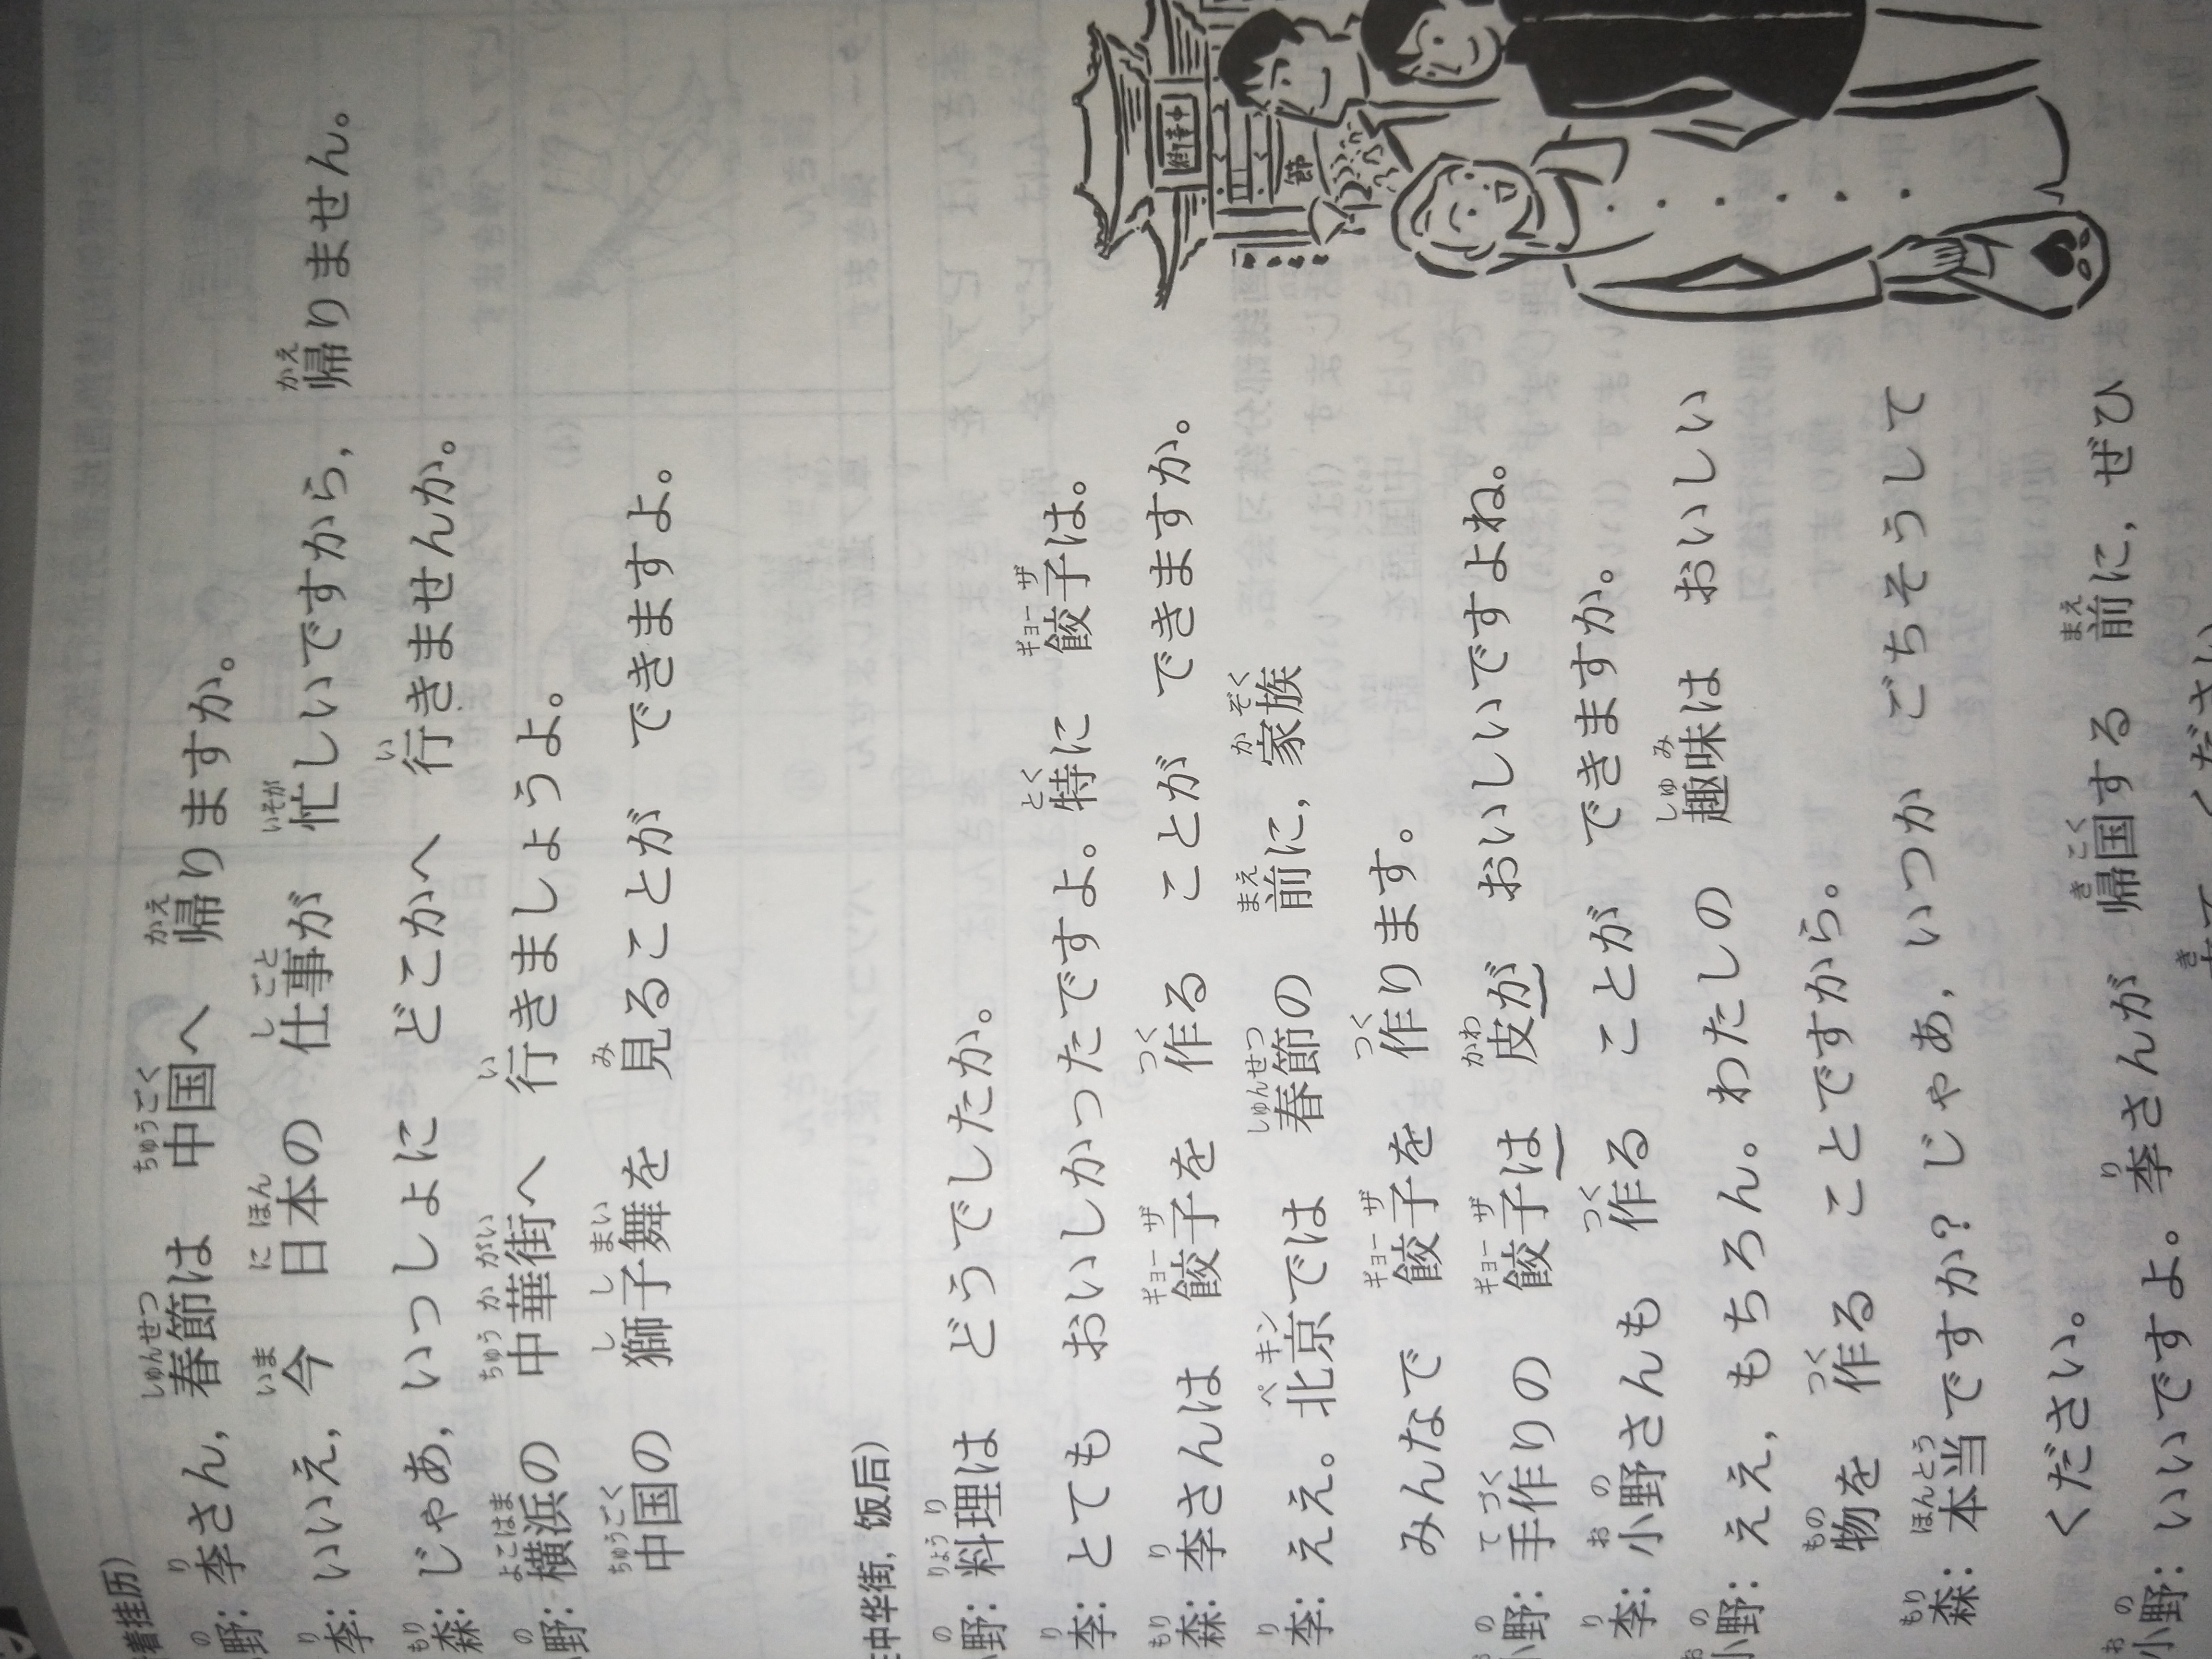 着挂历)
野: 李さん, 春節は 中国へ 帰りますか。
李: いいえ, 今 日本の 仕事が 忙しいですから, 帰りません。
森: じゃあ, いっしょに どこかへ 行きませんか。
野: 横浜の 中華街へ 行きましょうよ。
中国の 獅子舞を 見ることが できますよ。
中华街, 饭后)
野: 料理は どうでしたか。
李: とても おいしかったですよ。特に 餃子は。
森: 李さんは 餃子を 作る ことが できますか。
李: ええ。北京では 春節の 前に, 家族
みんなで 餃子を 作ります。
小野: 手作りの 餃子は 皮が おいしいですよね。
李: 小野さんも 作る ことが できますか。
小野: ええ, もちろん。わたしの 趣味は おいしい
物を 作る ことですから。
森: 本当ですか? じゃあ, いつか ごちそうして
ください。
小野: いいですよ。李さんが 帰国する 前に, ぜひ
来て ください
中華街